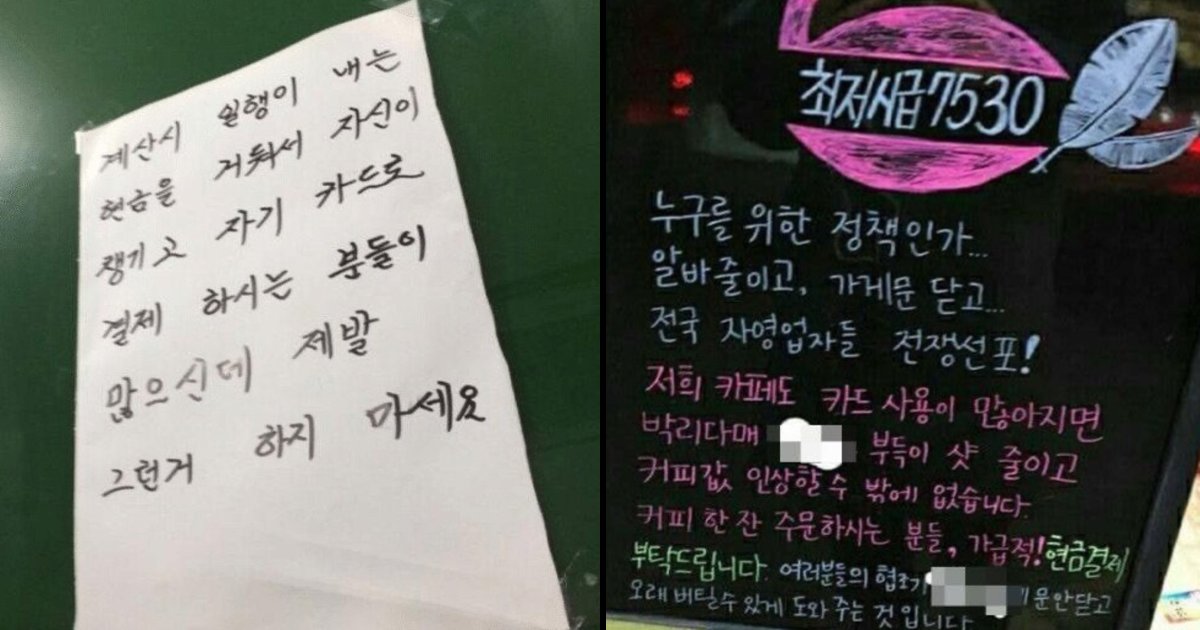 계산시 일행이 내는
현금을 거둬서 자신이
챙기고 자기 카드로
결제 하시는 분들이
많으신데 제발
그런거 하지 마세요
최저시급7530
누구를 위한 정책인가...
알바줄이고, 가게문 닫고...
전국 자영업자들 전쟁선포!
저희 카페도 카드사용이 많아지면
박리다매 부득이 샷 줄이고
커피값 인상할수 밖에 없습니다.
커피 한잔 주문하시는 분들, 가급적! 현금결제
부탁드립니다. 여러분들의 협조가 문안닫고
오래버틸수있게 도와주는 것입니다